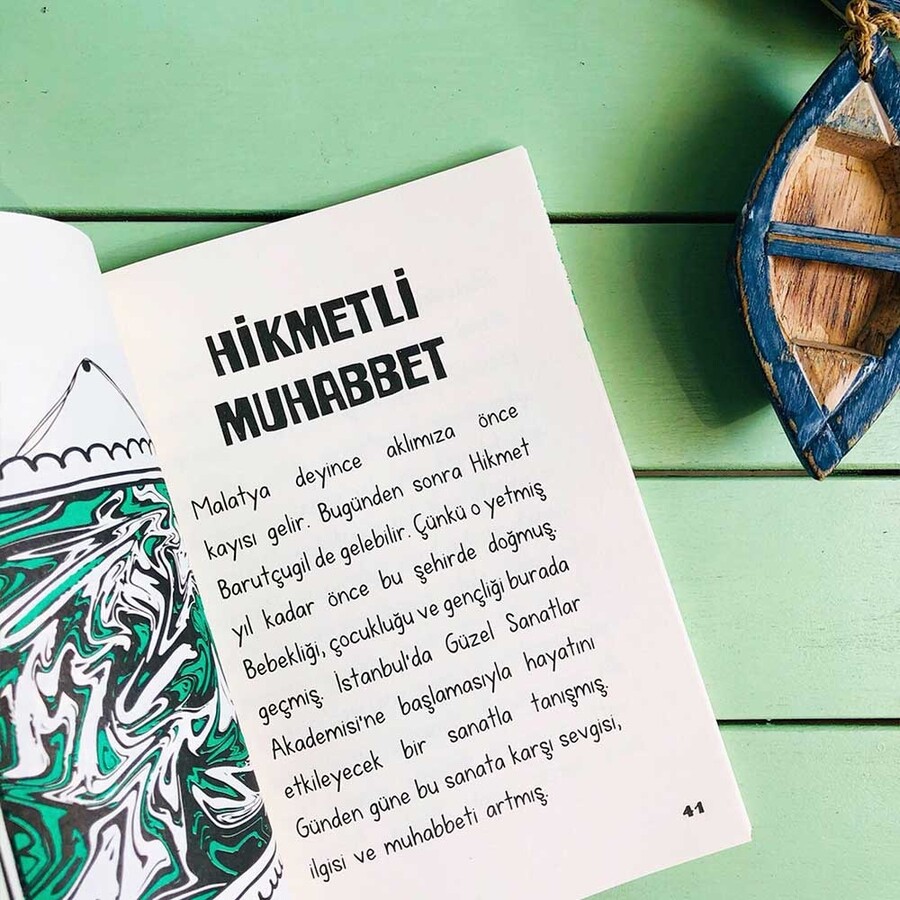 HİKMETLİ
MUHABBET
Malatya deyince aklımıza önce
kayısı gelir. Bugünden sonra Hikmet
Barutçugil de gelebilir. Çünkü o yetmiş
yıl kadar önce bu şehirde doğmuş.
Bebekliği, çocukluğu ve gençliği burada
geçmiş. İstanbul'da Güzel Sanatlar
Akademisi'ne başlamasıyla hayatını
etkileyecek bir sanatla tanışmış.
Günden güne bu sanata karşı sevgisi,
ilgisi ve muhabbeti artmış.
41